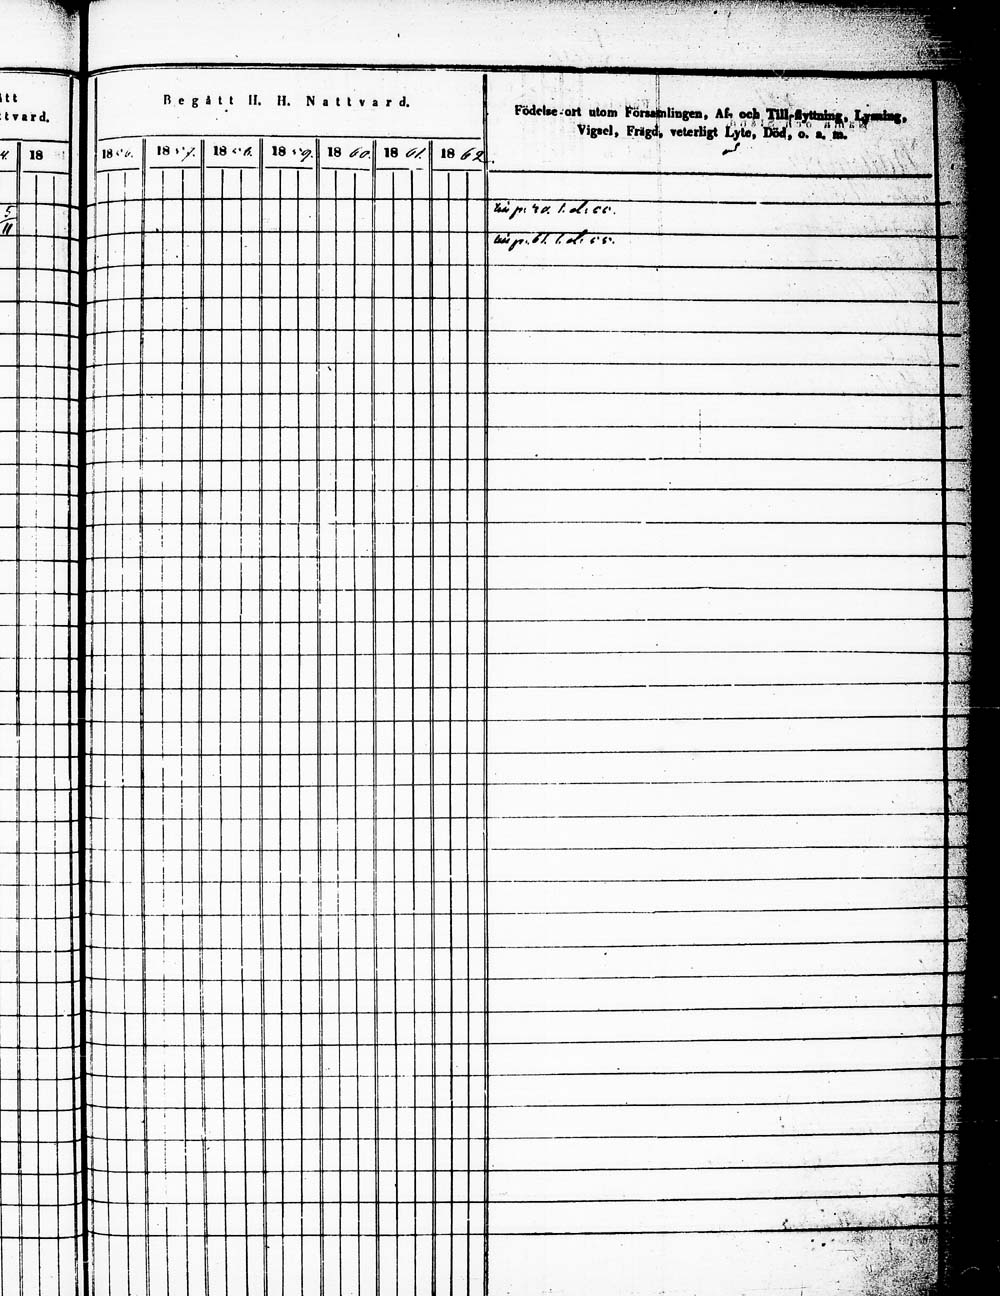 ått
ttvard.
4. 18
5
11
Begått H. H. Nattvard.
1856. 1857. 1858. 1859. 1860. 1861. 1862.
Födelse-ort utom Församlingen, Af- och Till-flyttning, Lysning,
Vigsel, Frägd, veterligt Lyte, Död, o. s. m.